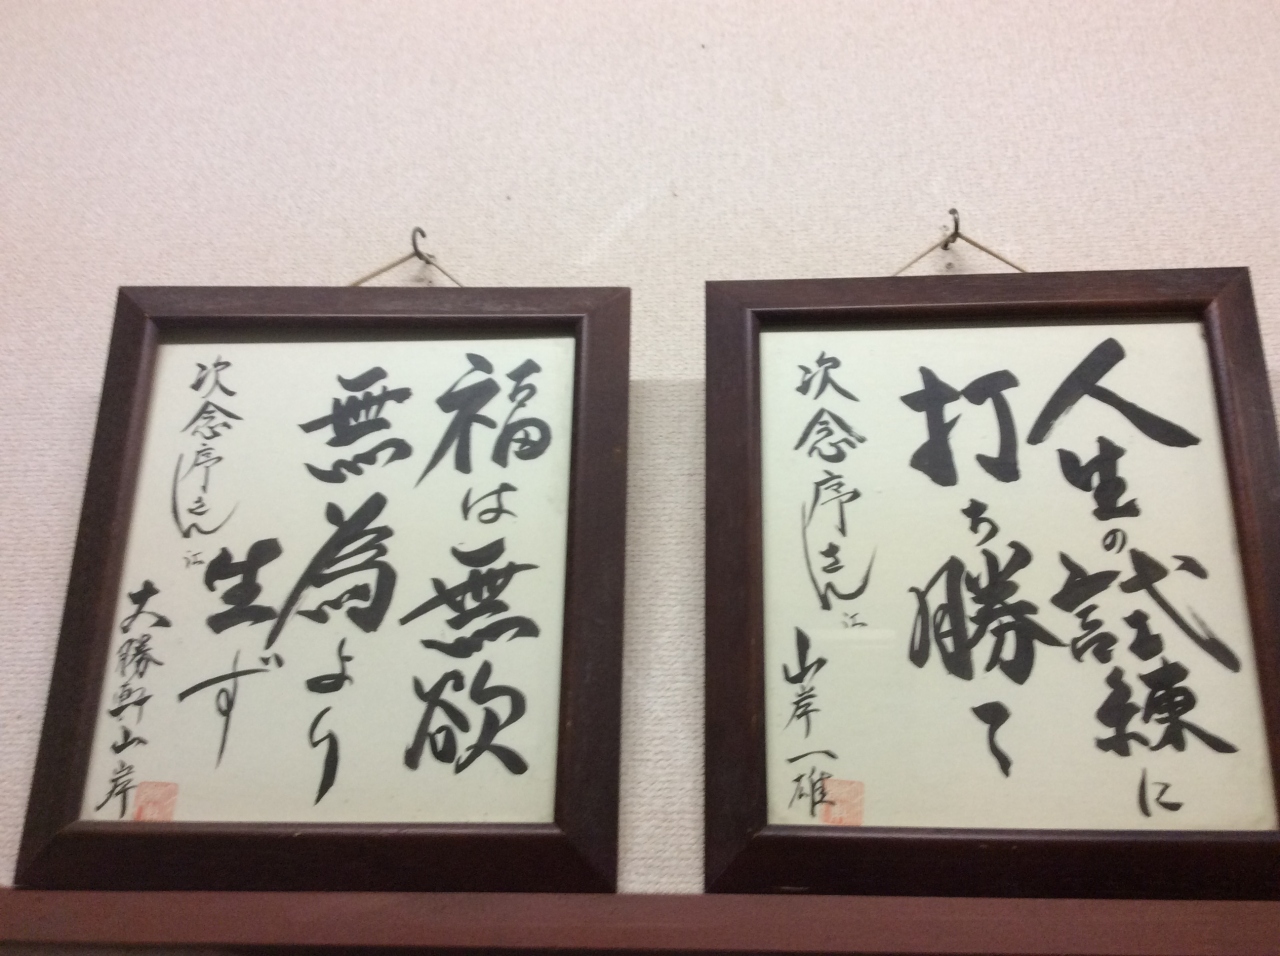 人生の試練に
打ち勝て
次念序さん江
山岸一雄
福は無欲
無為より
生ず
次念序さん江
大勝軒山岸